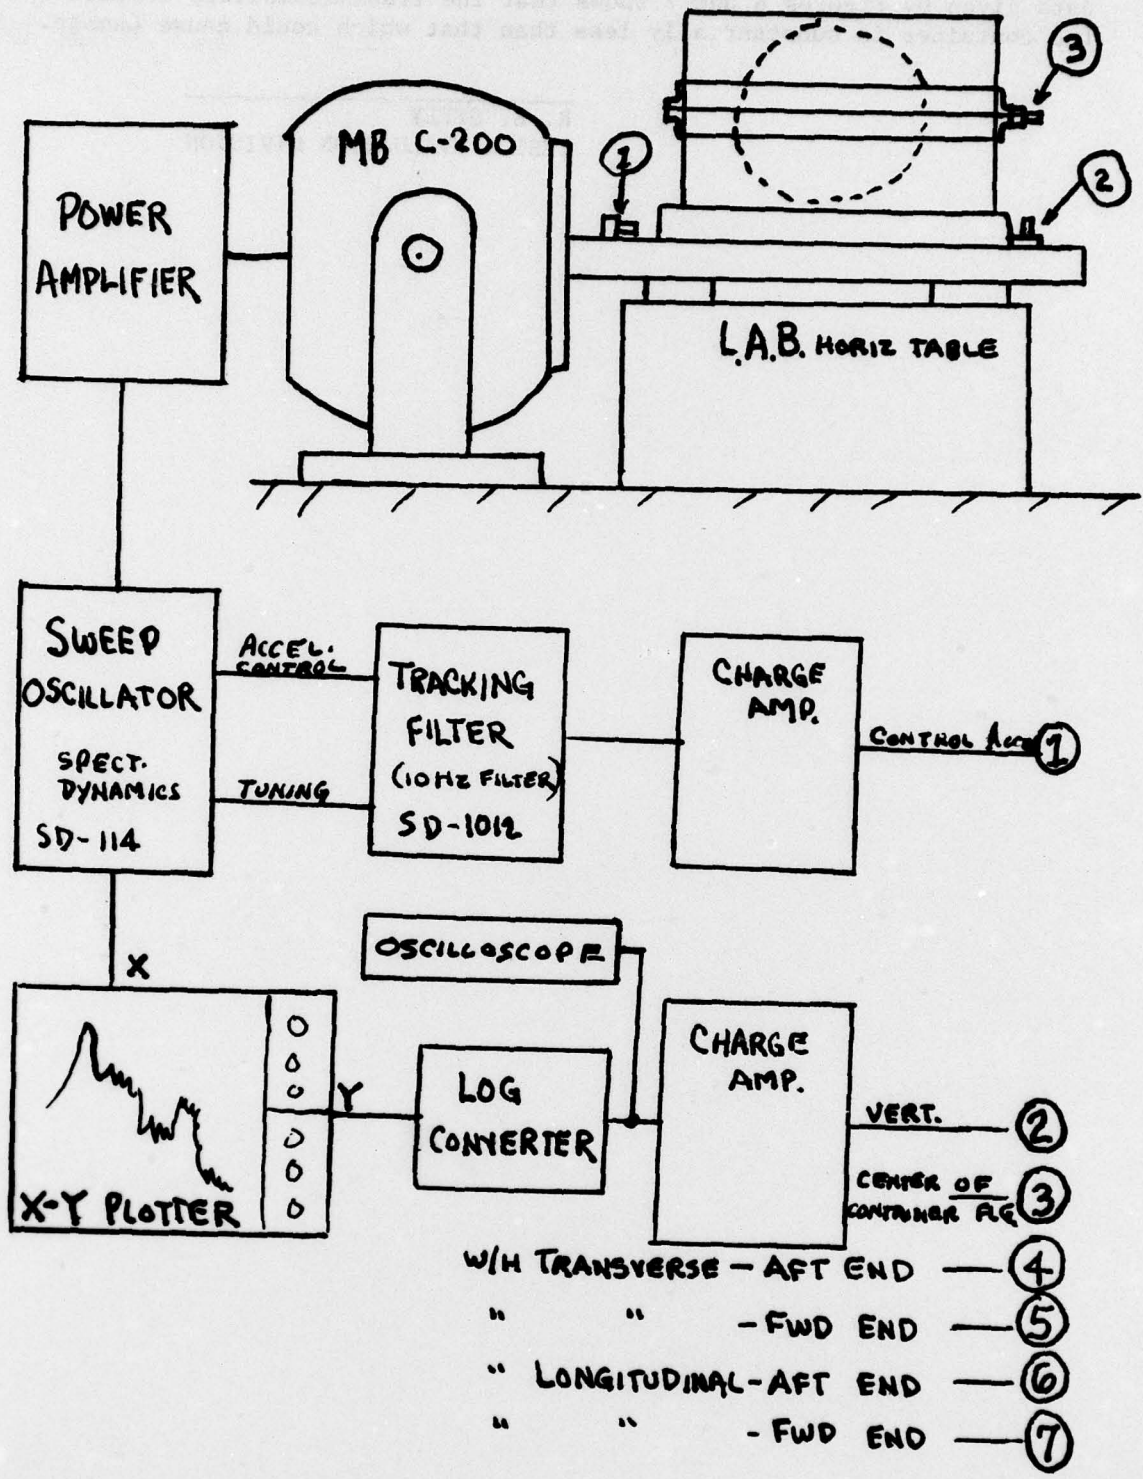 3
MB C-200
1
2
POWER
AMPLIFIER
L.A.B. HORIZ TABLE
SWEEP
OSCILLATOR
SPECT.
DYNAMICS
SD-114
ACCEL.
CONTROL
TUNING
TRACKING
FILTER
(10 HZ FILTER)
SD-1012
CHARGE
AMP.
CONTROL ACCEL
1
X
OSCILLOSCOPE
X-Y PLOTTER
Y
LOG
CONVERTER
CHARGE
AMP.
VERT. 2
CENTER OF
CONTAINER FLG 3
W/H TRANSVERSE - AFT END — 4
" " - FWD END — 5
" LONGITUDINAL - AFT END — 6
" " - FWD END — 7